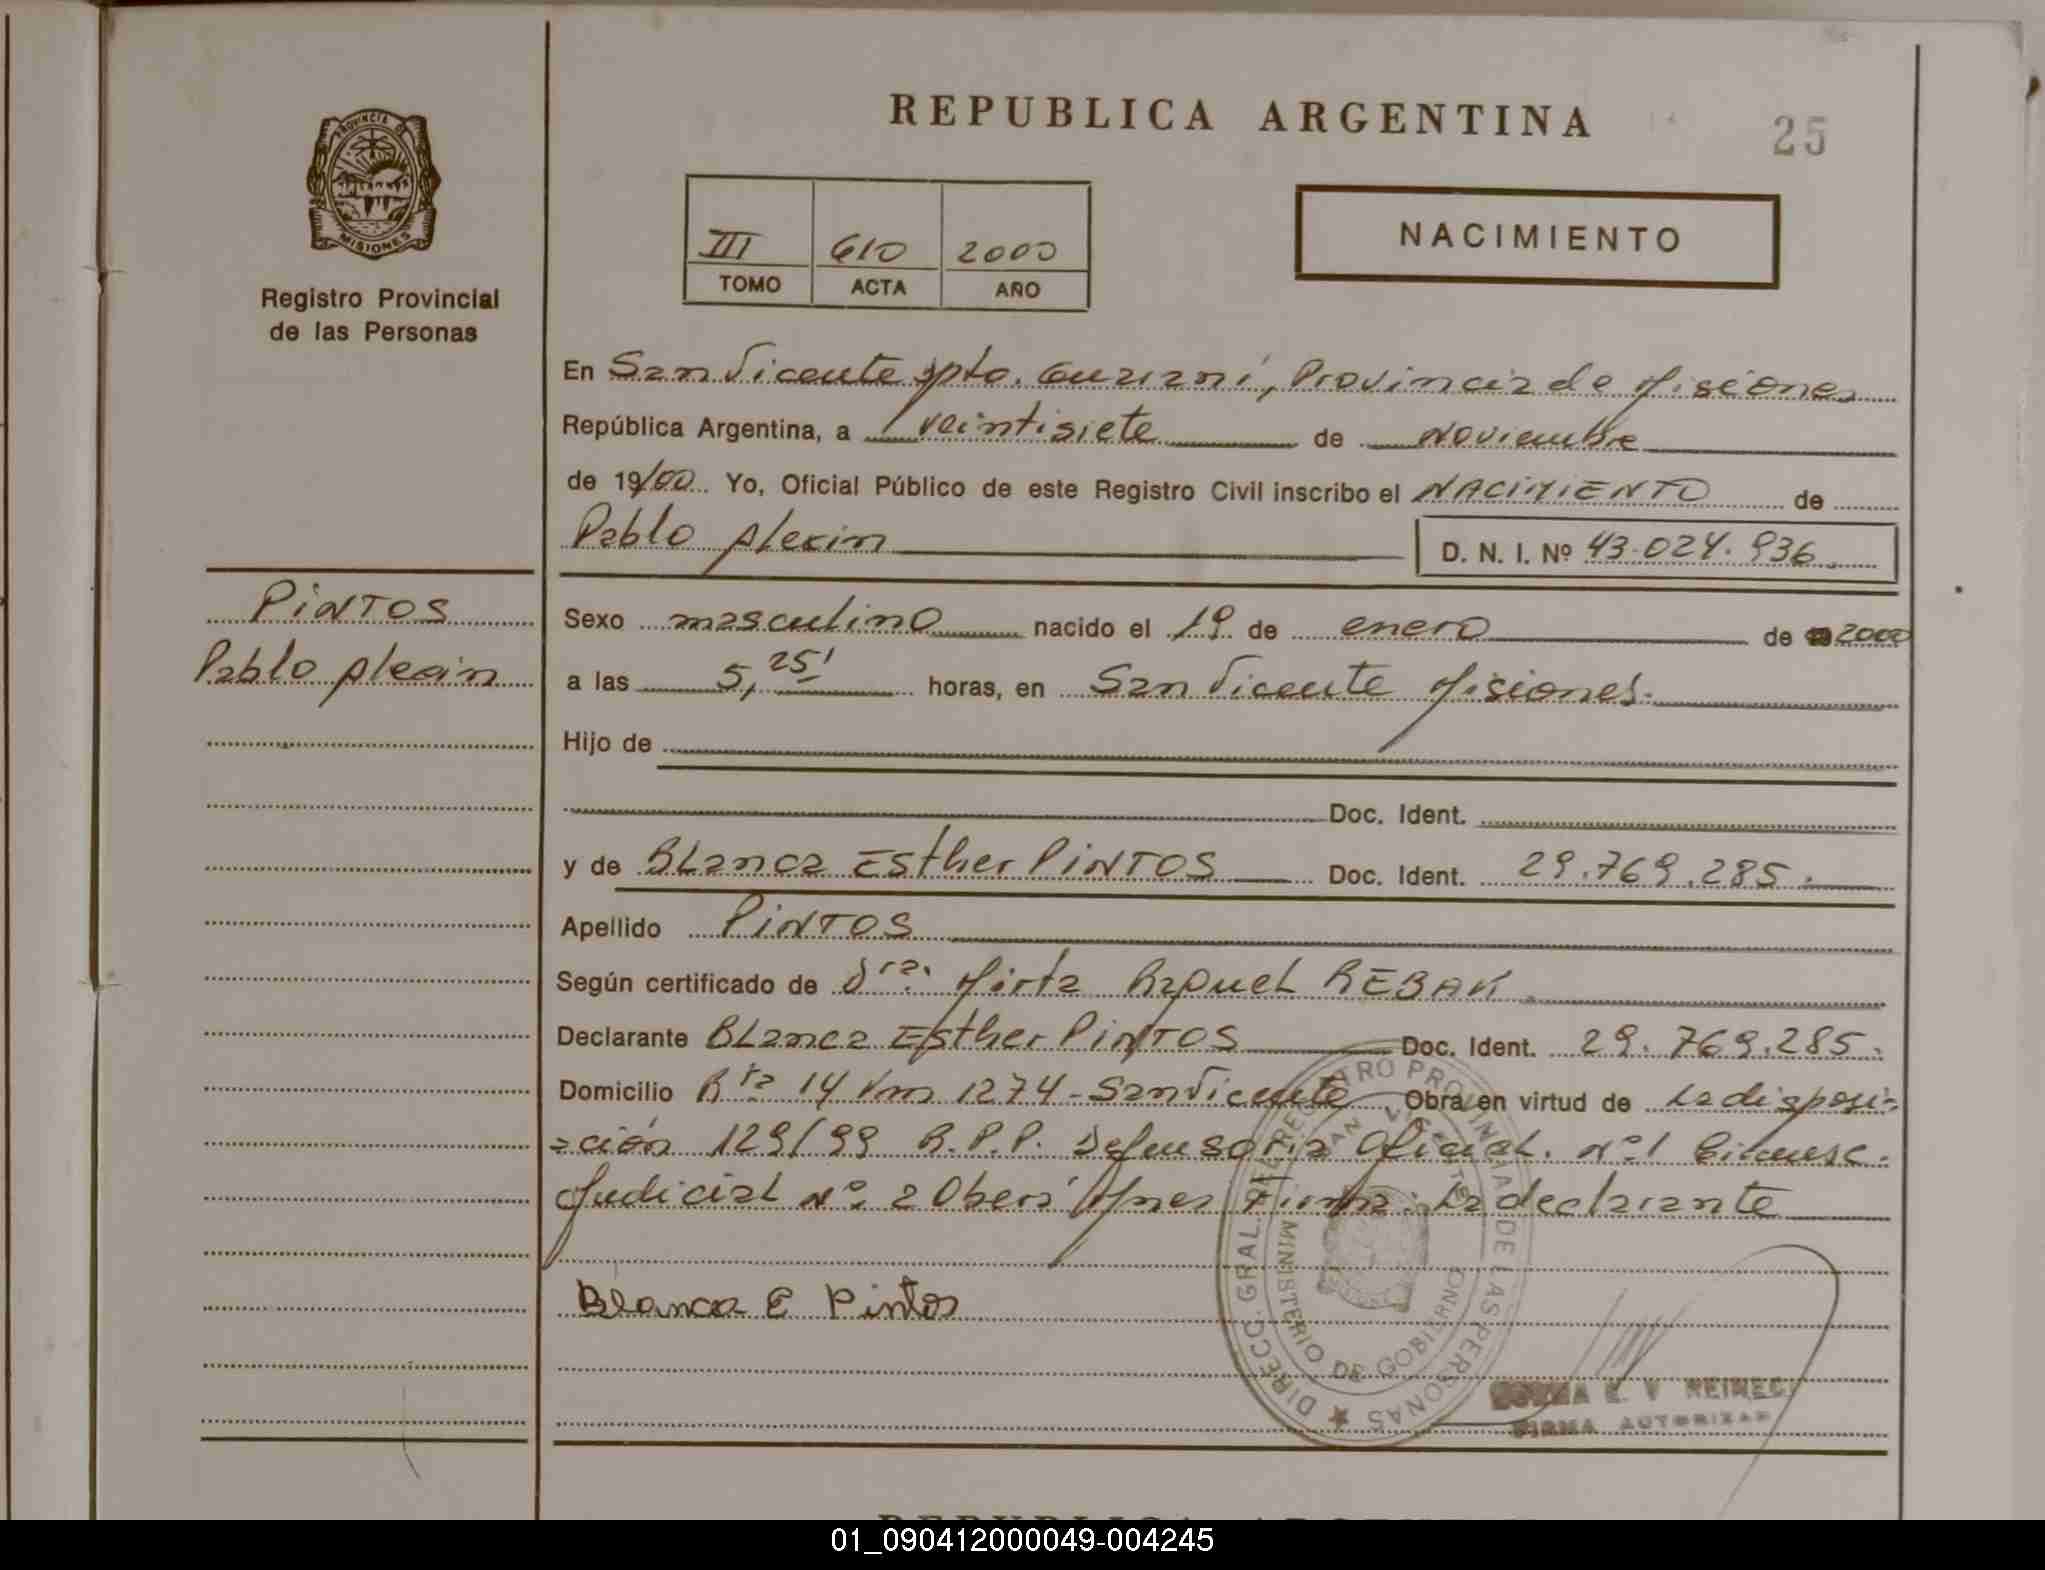 REPUBLICA ARGENTINA
25
PROVINCIA DE
MISIONES
Registro Provincial
de las Personas
III 610 2000
TOMO ACTA AÑO
NACIMIENTO
En San Vicente Dpto. Guaraní, Provincia de Misiones
República Argentina, a veintisiete de Noviembre
de 19/00 Yo, Oficial Público de este Registro Civil inscribo el NACIMIENTO de
Pablo Alexin D. N. I. Nº 43.024.936
PINTOS
Pablo Alexin
Sexo masculino nacido el 19 de enero de 2000
a las 5,25' horas, en San Vicente Misiones.
Hijo de
Doc. Ident.
y de BLanca Esther PINTOS Doc. Ident. 29.769.285.
Apellido PINTOS
Según certificado de Dra. Mirta Raquel REBAK
Declarante BLanca Esther PINTOS Doc. Ident. 29.769.285.
Domicilio Rta 14 Km 1274 - San Vicente Obra en virtud de La disposi-
ción 129/99 R.P.P. Defensoria Oficial. Nº1 Circunsc.
Judicial Nº 2 Oberá Mnes Firma: La declarante
Blanca E Pintos
DIRECC. GRAL. DEL REGISTRO PROVINCIAL DE LAS PERSONAS
SAN VICENTE
MINISTERIO DE GOBIERNO
E. V REINEC
FIRMA AUTORIZAD
REPUBLICA ARGENTINA
01_090412000049-004245